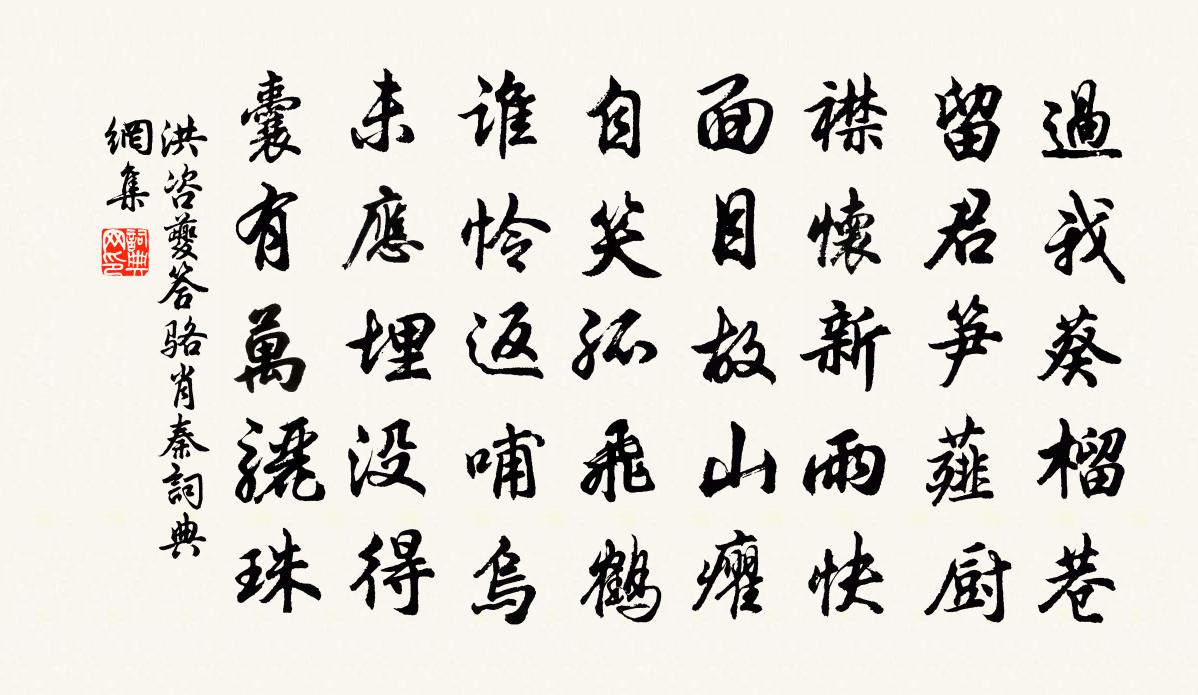 過我葵榴巷
留君笋薤厨
襟懷新雨快
面目故山癯
自笑孤飛鶴
谁怜返哺烏
未應埋没得
囊有萬驪珠
洪咨夔答骆肖秦詞典
網集
詞典网印